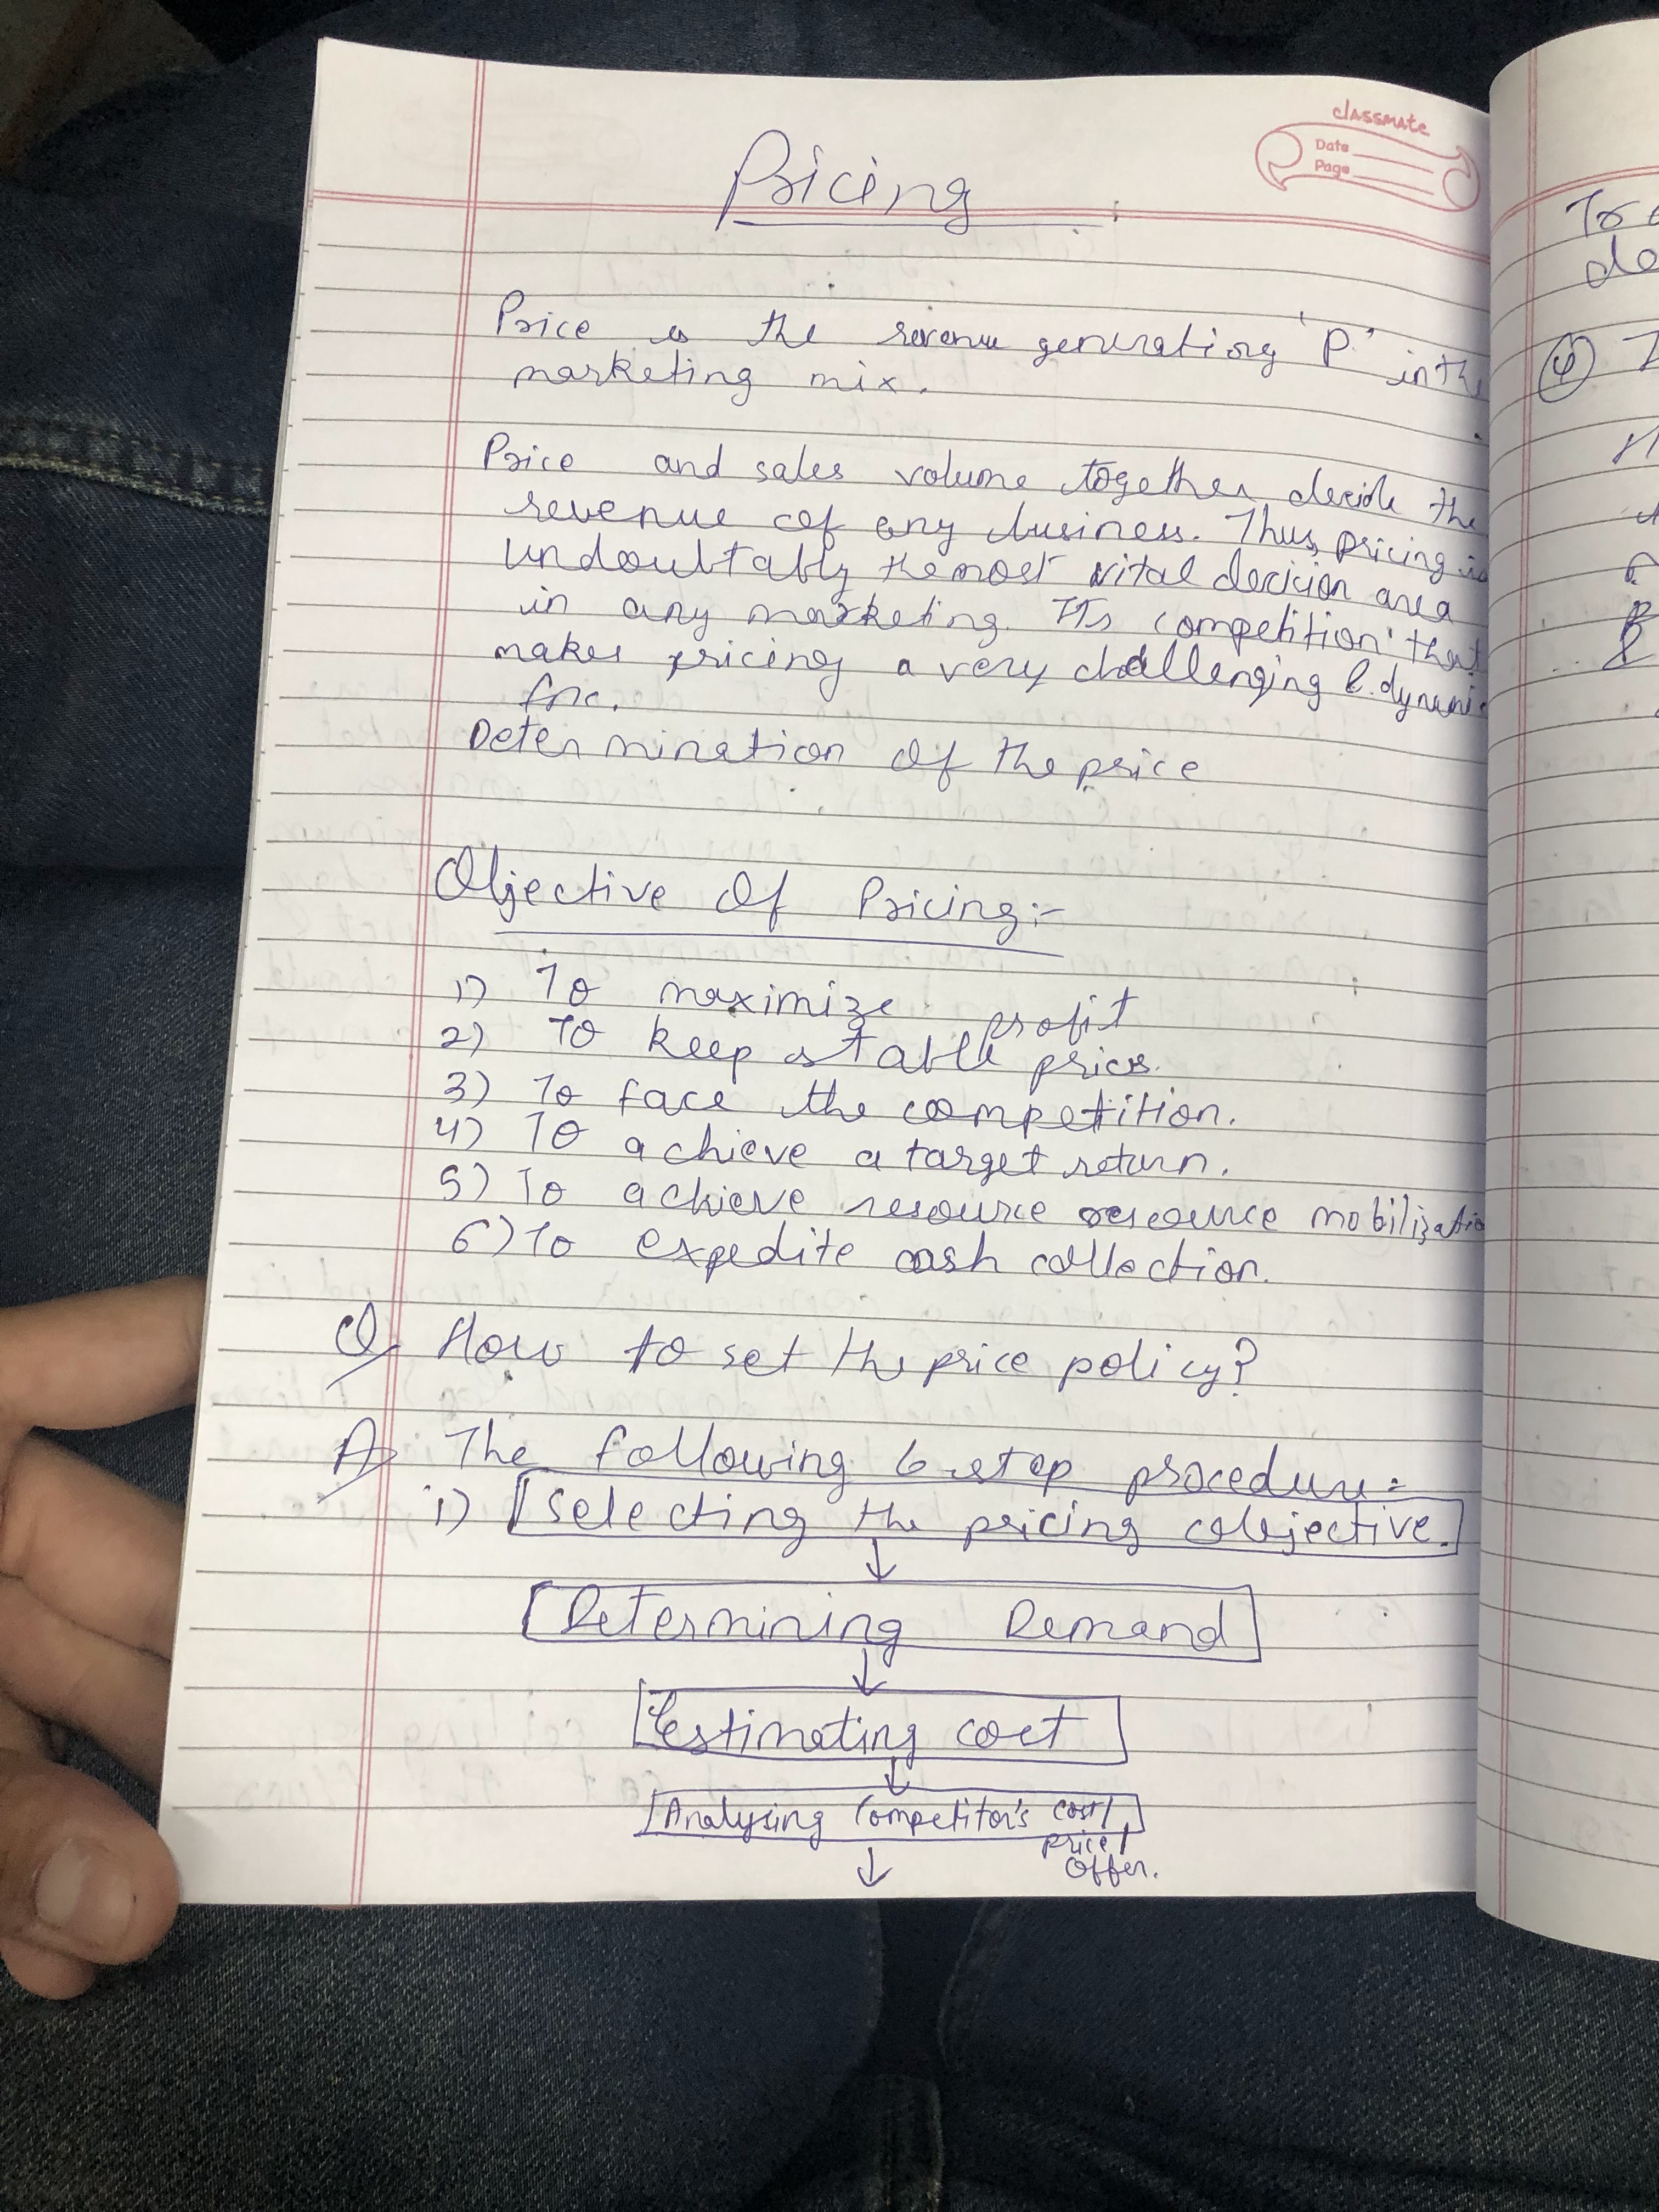 classmate
Date
Page
Pricing
Price is the revenue generating 'P' in the
marketing mix.
Price and sales volume together decide the
revenue of any business. Thus pricing is
undoubtably the most vital decicion area
in any marketing. Its competition that
makes pricing a very challenging & dynami
fnc.
Determination Of the price
Objective Of Pricing:-
1) To maximize profit
2) To keep stable price.
3) To face the competition.
4) To achieve a target return.
5) To achieve resource resource mobilizatio
6) To expedite cash collection.
Q) How to set the price policy?
A) The following 6 step procedure:
i) Selecting the pricing objective.
↓
Determining Demand
↓
Estimating cost
↓
Analysing Competitor's cost/
price/
Offer.
↓
To
de
4